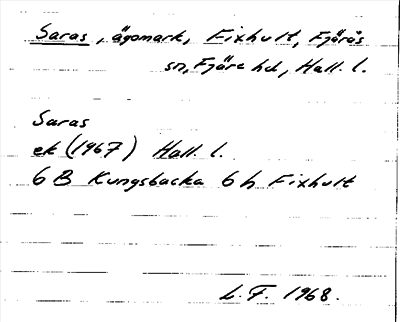 Saras, ägomark, Fixhult, Fjärås
sn, Fjäre hd, Hall. l.
Saras
ek (1967) Hall. l.
6 B Kungsbacka 6 h Fixhult
L. F. 1968.